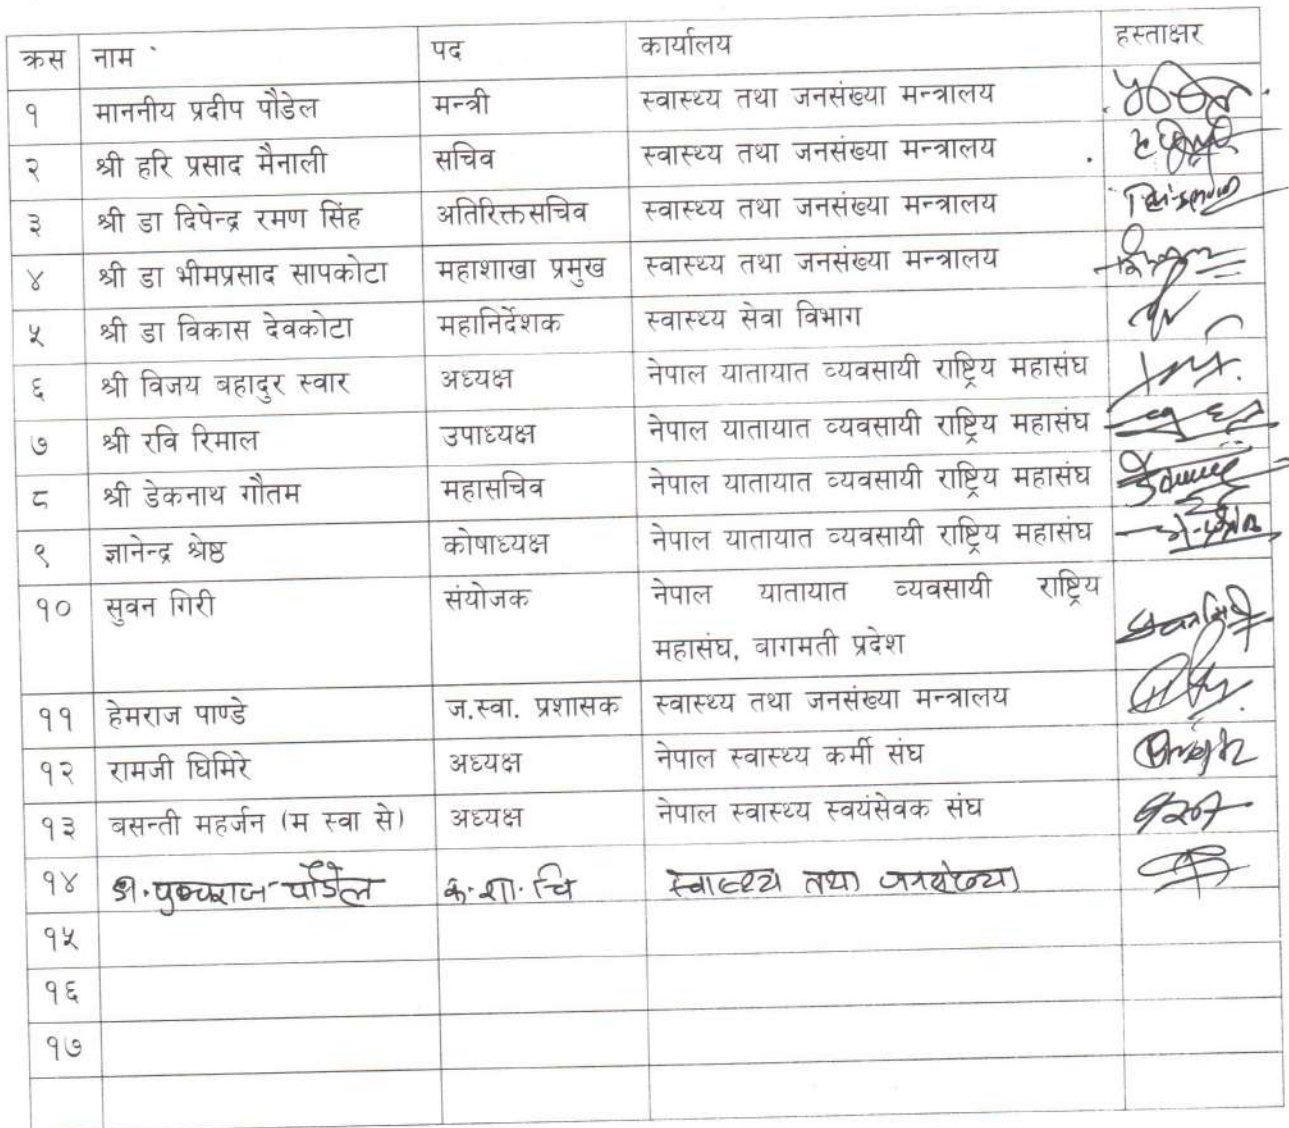 क्रस नाम पद कार्यालय हस्ताक्षर
१ माननीय प्रदीप पौडेल मन्त्री स्वास्थ्य तथा जनसंख्या मन्त्रालय
२ श्री हरि प्रसाद मैनाली सचिव स्वास्थ्य तथा जनसंख्या मन्त्रालय
३ श्री डा दिपेन्द्र रमण सिंह अतिरिक्तसचिव स्वास्थ्य तथा जनसंख्या मन्त्रालय
४ श्री डा भीमप्रसाद सापकोटा महाशाखा प्रमुख स्वास्थ्य तथा जनसंख्या मन्त्रालय
५ श्री डा विकास देवकोटा महानिर्देशक स्वास्थ्य सेवा विभाग
६ श्री विजय बहादुर स्वार अध्यक्ष नेपाल यातायात व्यवसायी राष्ट्रिय महासंघ
७ श्री रवि रिमाल उपाध्यक्ष नेपाल यातायात व्यवसायी राष्ट्रिय महासंघ
८ श्री डेकनाथ गौतम महासचिव नेपाल यातायात व्यवसायी राष्ट्रिय महासंघ
९ ज्ञानेन्द्र श्रेष्ठ कोषाध्यक्ष नेपाल यातायात व्यवसायी राष्ट्रिय महासंघ
१० सुवन गिरी संयोजक नेपाल यातायात व्यवसायी राष्ट्रिय
महासंघ, बागमती प्रदेश
११ हेमराज पाण्डे ज.स्वा. प्रशासक स्वास्थ्य तथा जनसंख्या मन्त्रालय
१२ रामजी घिमिरे अध्यक्ष नेपाल स्वास्थ्य कर्मी संघ
१३ बसन्ती महर्जन (म स्वा से) अध्यक्ष नेपाल स्वास्थ्य स्वयंसेवक संघ
१४ पौडेल स्वास्थ्य तथा जनसंख्या
१५
१६
१७